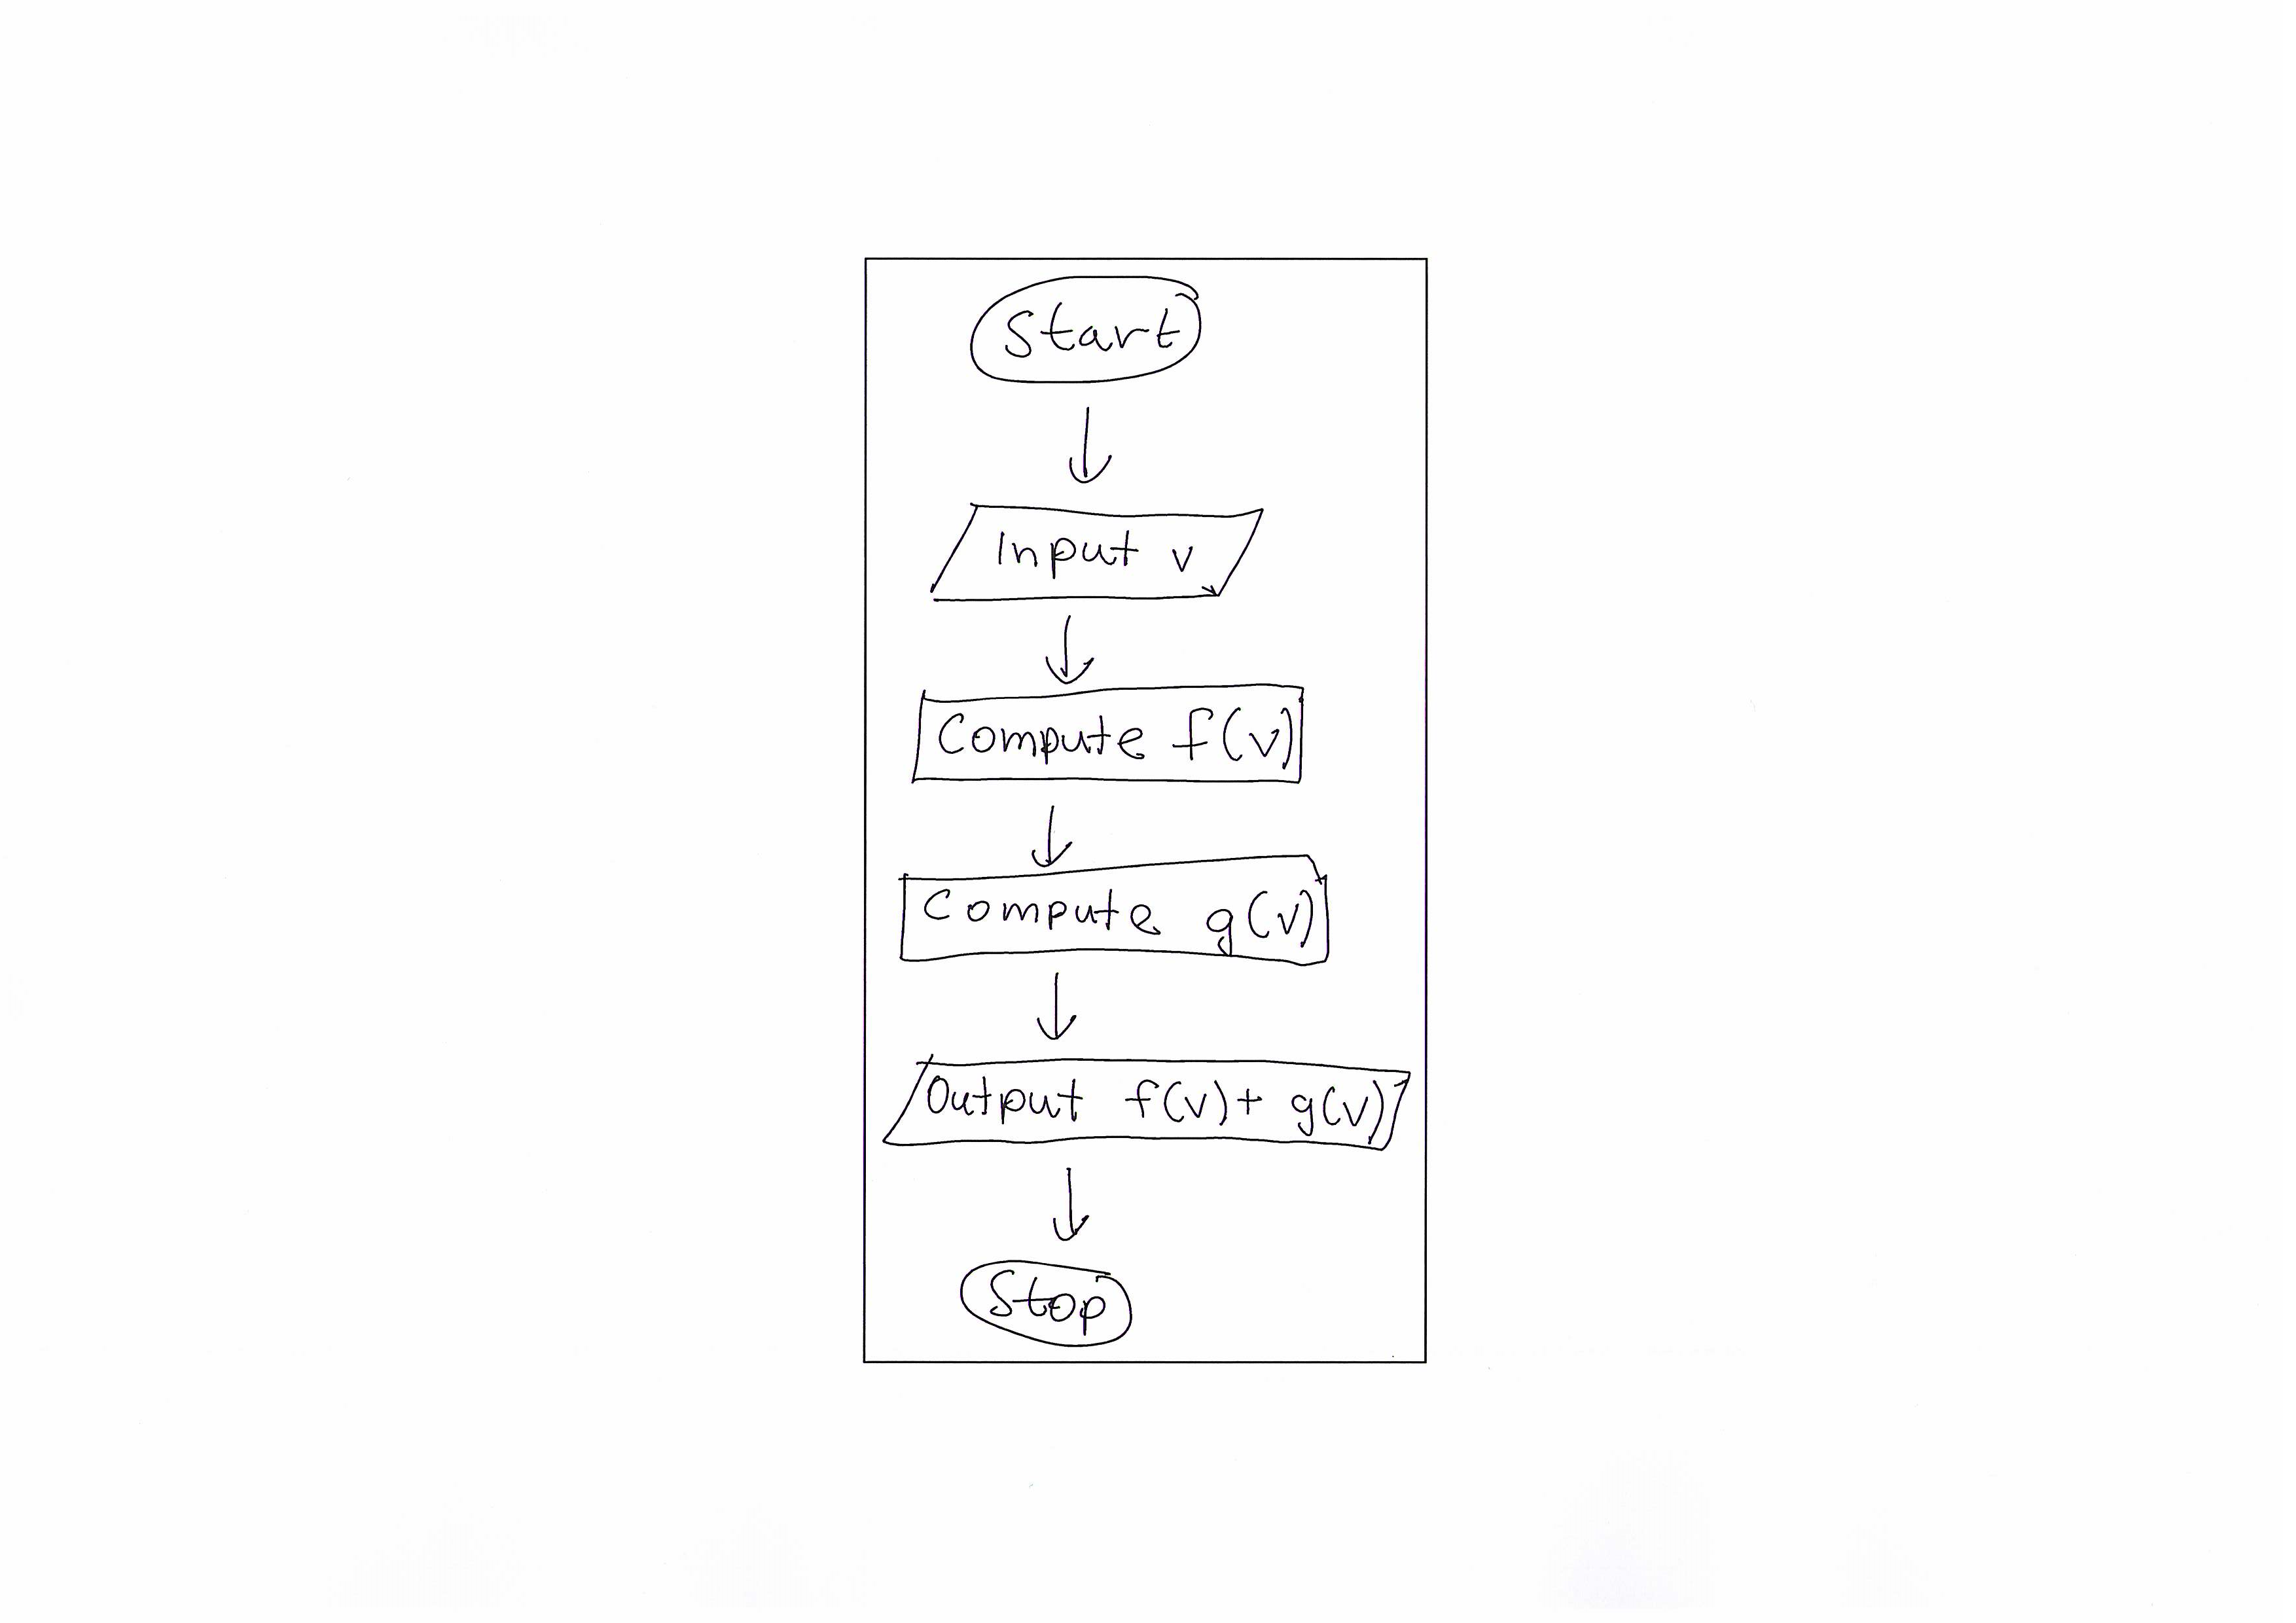 Start
Input v
Compute f(v)
Compute g(v)
Output f(v)+ g(v)
Stop